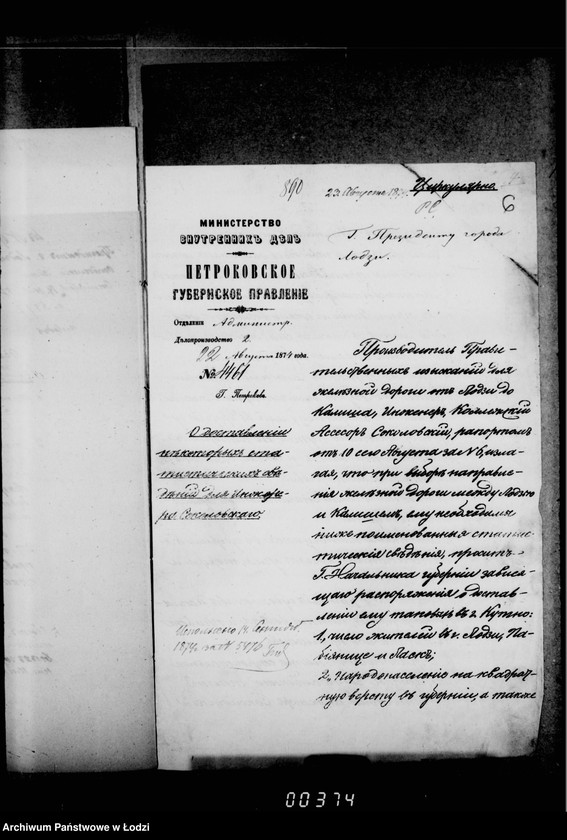 890
23 Августа 1874
Циркулярно
6
МИНИСТЕРСТВО
ВНУТРЕННИХЪ ДѢЛЪ
ПЕТРОКОВСКОЕ
ГУБЕРНСКОЕ ПРАВЛЕНІЕ
Отдѣленіе Администр.
Дѣлопроизводство 2.
22 Августа 1874 года.
№ 4461
Г. Петроковъ
О доставленіи
нѣкоторыхъ ста-
тистическихъ свѣ-
дѣній для Инжене-
ра Соколовскаго
Исполнено 14 Сентяб.
1874 за №
Г. Президенту города
Лодзи.
Производитель Прави-
тельственныхъ изысканій для
желѣзной дороги отъ Лодзи до
Калиша, Инженеръ, Коллежскій
Ассесоръ Соколовскій, рапортомъ
отъ 10 сего Августа за № 6, изла-
гая, что при выборѣ направле-
нія желѣзной дороги между Лодзью
и Калишемъ, ему необходимы
ниже поименованныя статис-
тическія свѣдѣнія, проситъ
Г. Начальника губерніи зависѣ-
щаго распоряженія о достав-
леніи ему таковыхъ въ г. Кутно:
1, число жителей въ г. Лодзи, Па-
біянице и Ласкѣ;
2, Народонаселеніе на квадрат-
ную версту въ губерніи, а также
00374
Archiwum Państwowe w Łodzi